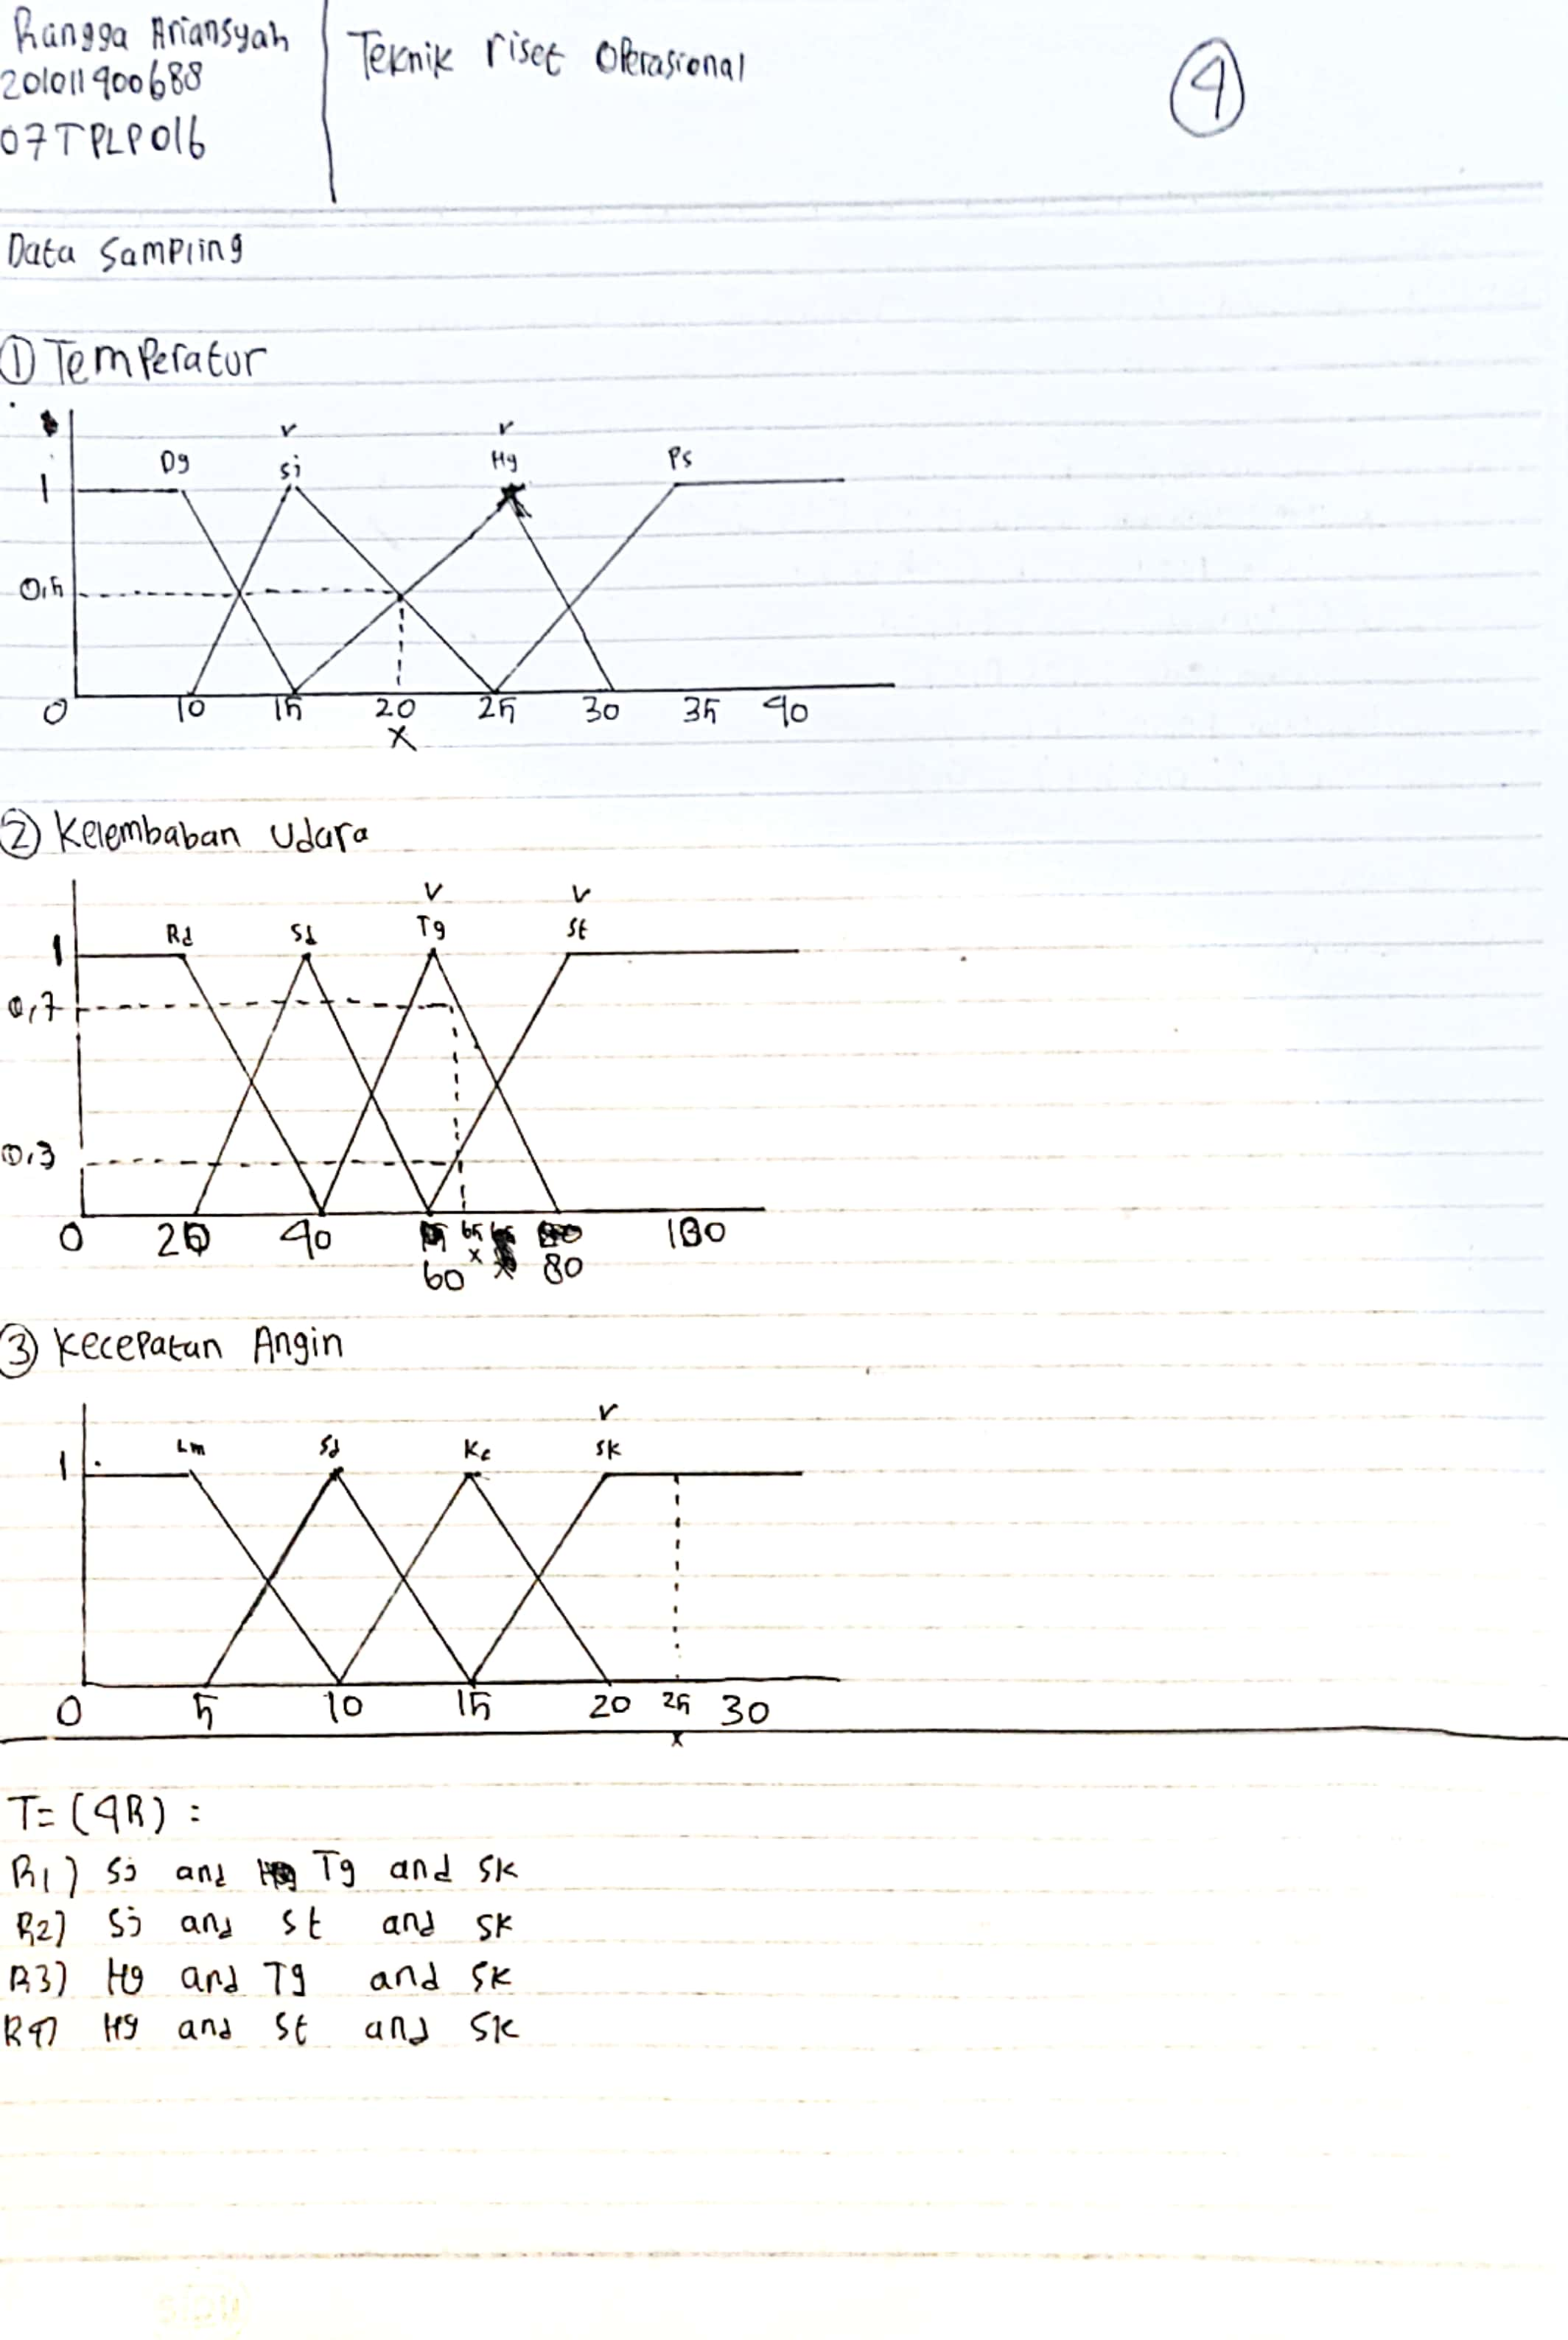 Rangga Ariansyah
201011400688
07TPLP016
Teknik riset Operasional
4
Data Sampling
① Temperatur
v v
Dg Sj Hg Ps
1
0,5
0 10 15 20 25 30 35 40
x
② Kelembaban Udara
v v
Rd Sd Tg St
1
0,7
0,3
0 20 40 65 100
x x
60 80
③ Kecepatan Angin
v
Lm Sd Kc SK
1
0 5 10 15 20 25 30
x
T= (4R) :
R1) Sj and Tg and SK
R2) Sj and St and SK
R3) Hg and Tg and SK
R4) Hg and St and SK